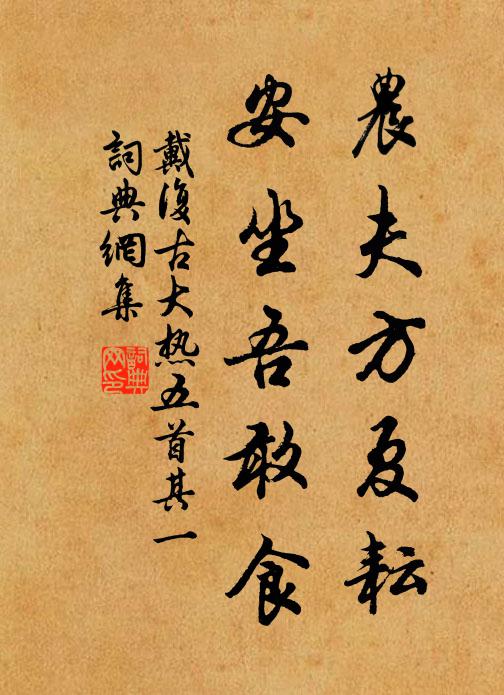 農夫方夏耘
安坐吾敢食
戴復古大热五首其一
詞典網集
詞典网印